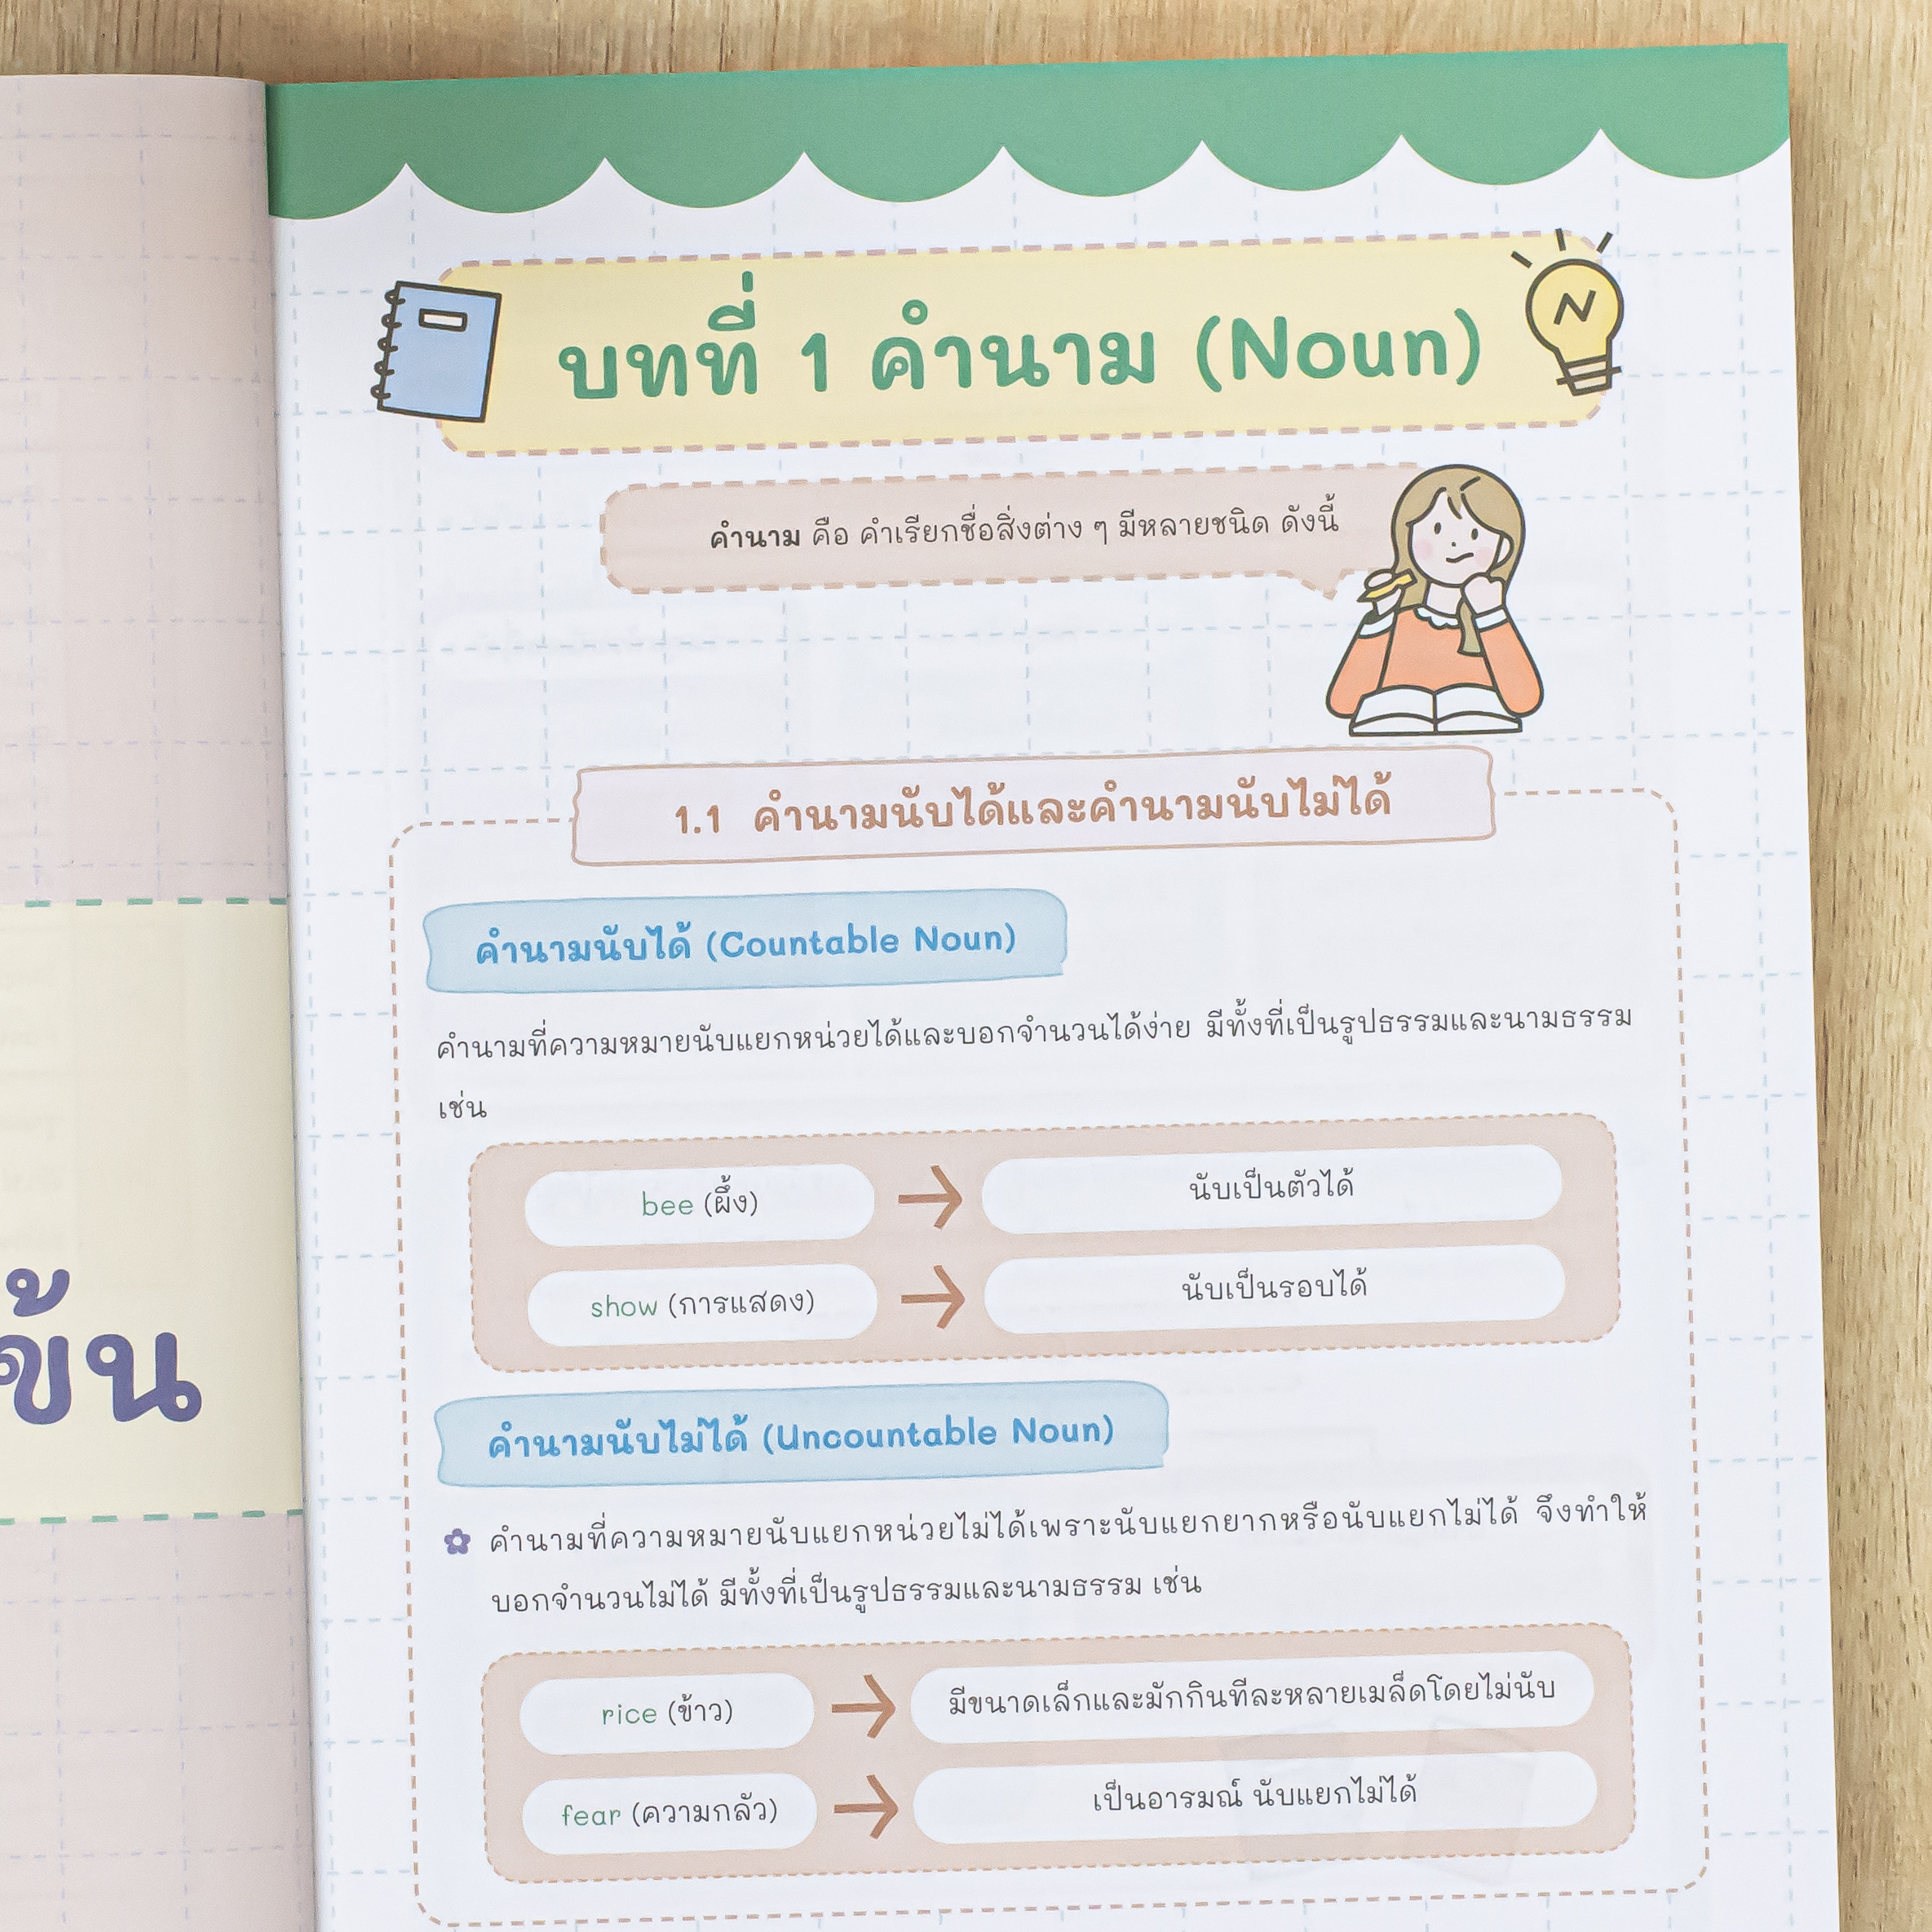 ข้น
บทที่ 1 คำนาม (Noun)
คำนาม คือ คำเรียกชื่อสิ่งต่าง ๆ มีหลายชนิด ดังนี้
1.1 คำนามนับได้และคำนามนับไม่ได้
คำนามนับได้ (Countable Noun)
คำนามที่ความหมายนับแยกหน่วยได้และบอกจำนวนได้ง่าย มีทั้งที่เป็นรูปธรรมและนามธรรม
เช่น
bee (ผึ้ง) → นับเป็นตัวได้
show (การแสดง) → นับเป็นรอบได้
คำนามนับไม่ได้ (Uncountable Noun)
คำนามที่ความหมายนับแยกหน่วยไม่ได้เพราะนับแยกยากหรือนับแยกไม่ได้ จึงทำให้
บอกจำนวนไม่ได้ มีทั้งที่เป็นรูปธรรมและนามธรรม เช่น
rice (ข้าว) → มีขนาดเล็กและมักกินทีละหลายเมล็ดโดยไม่นับ
fear (ความกลัว) → เป็นอารมณ์ นับแยกไม่ได้